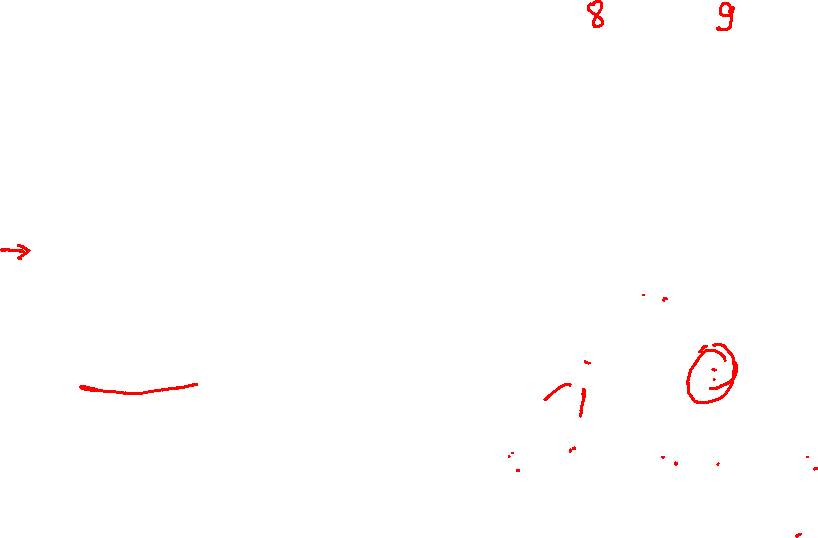 8 9
→